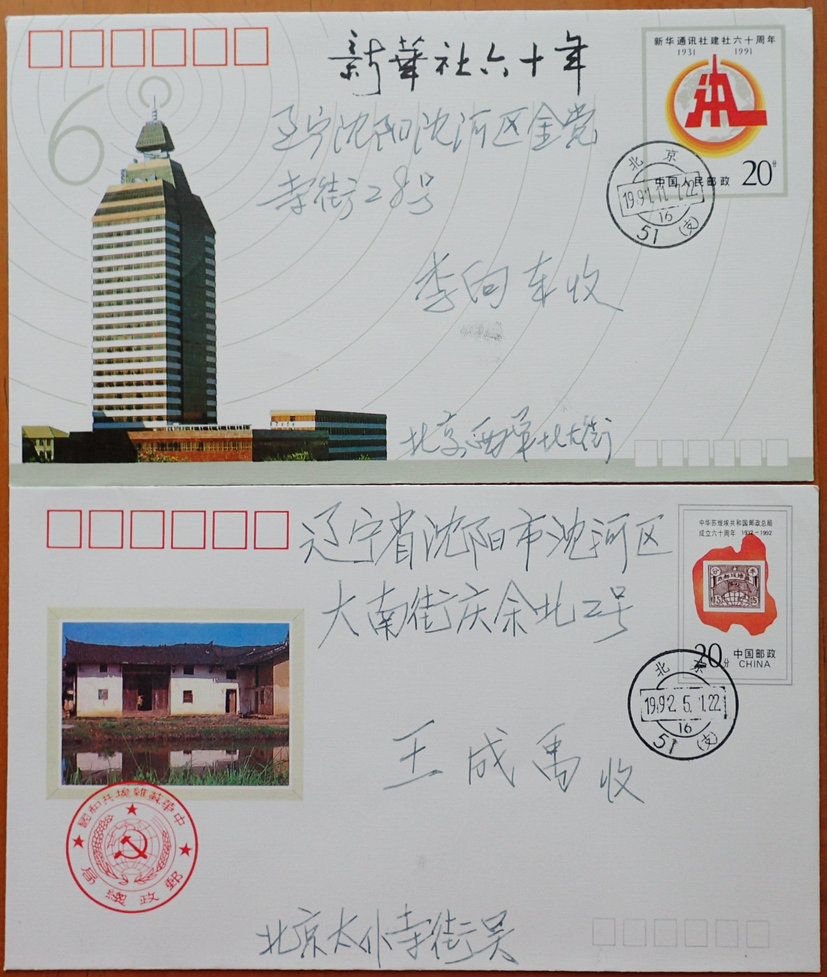 新華社六十年
新华通讯社建社六十周年
1931 1991
讯
60
辽宁沈阳沈河区金党
寺街28号
中国人民邮政 20分
北京
1991.11.7.22
16
51(支)
李向东收
北京西单北大街
辽宁省沈阳市沈河区
大南街庆余北2号
中华苏维埃共和国邮政总局
成立六十周年 1932-1992
20分 中国邮政
CHINA
北京
1992.5.1.22
16
51(支)
王成禹收
中華蘇維埃共和國
郵政總局
北京太仆寺街吴